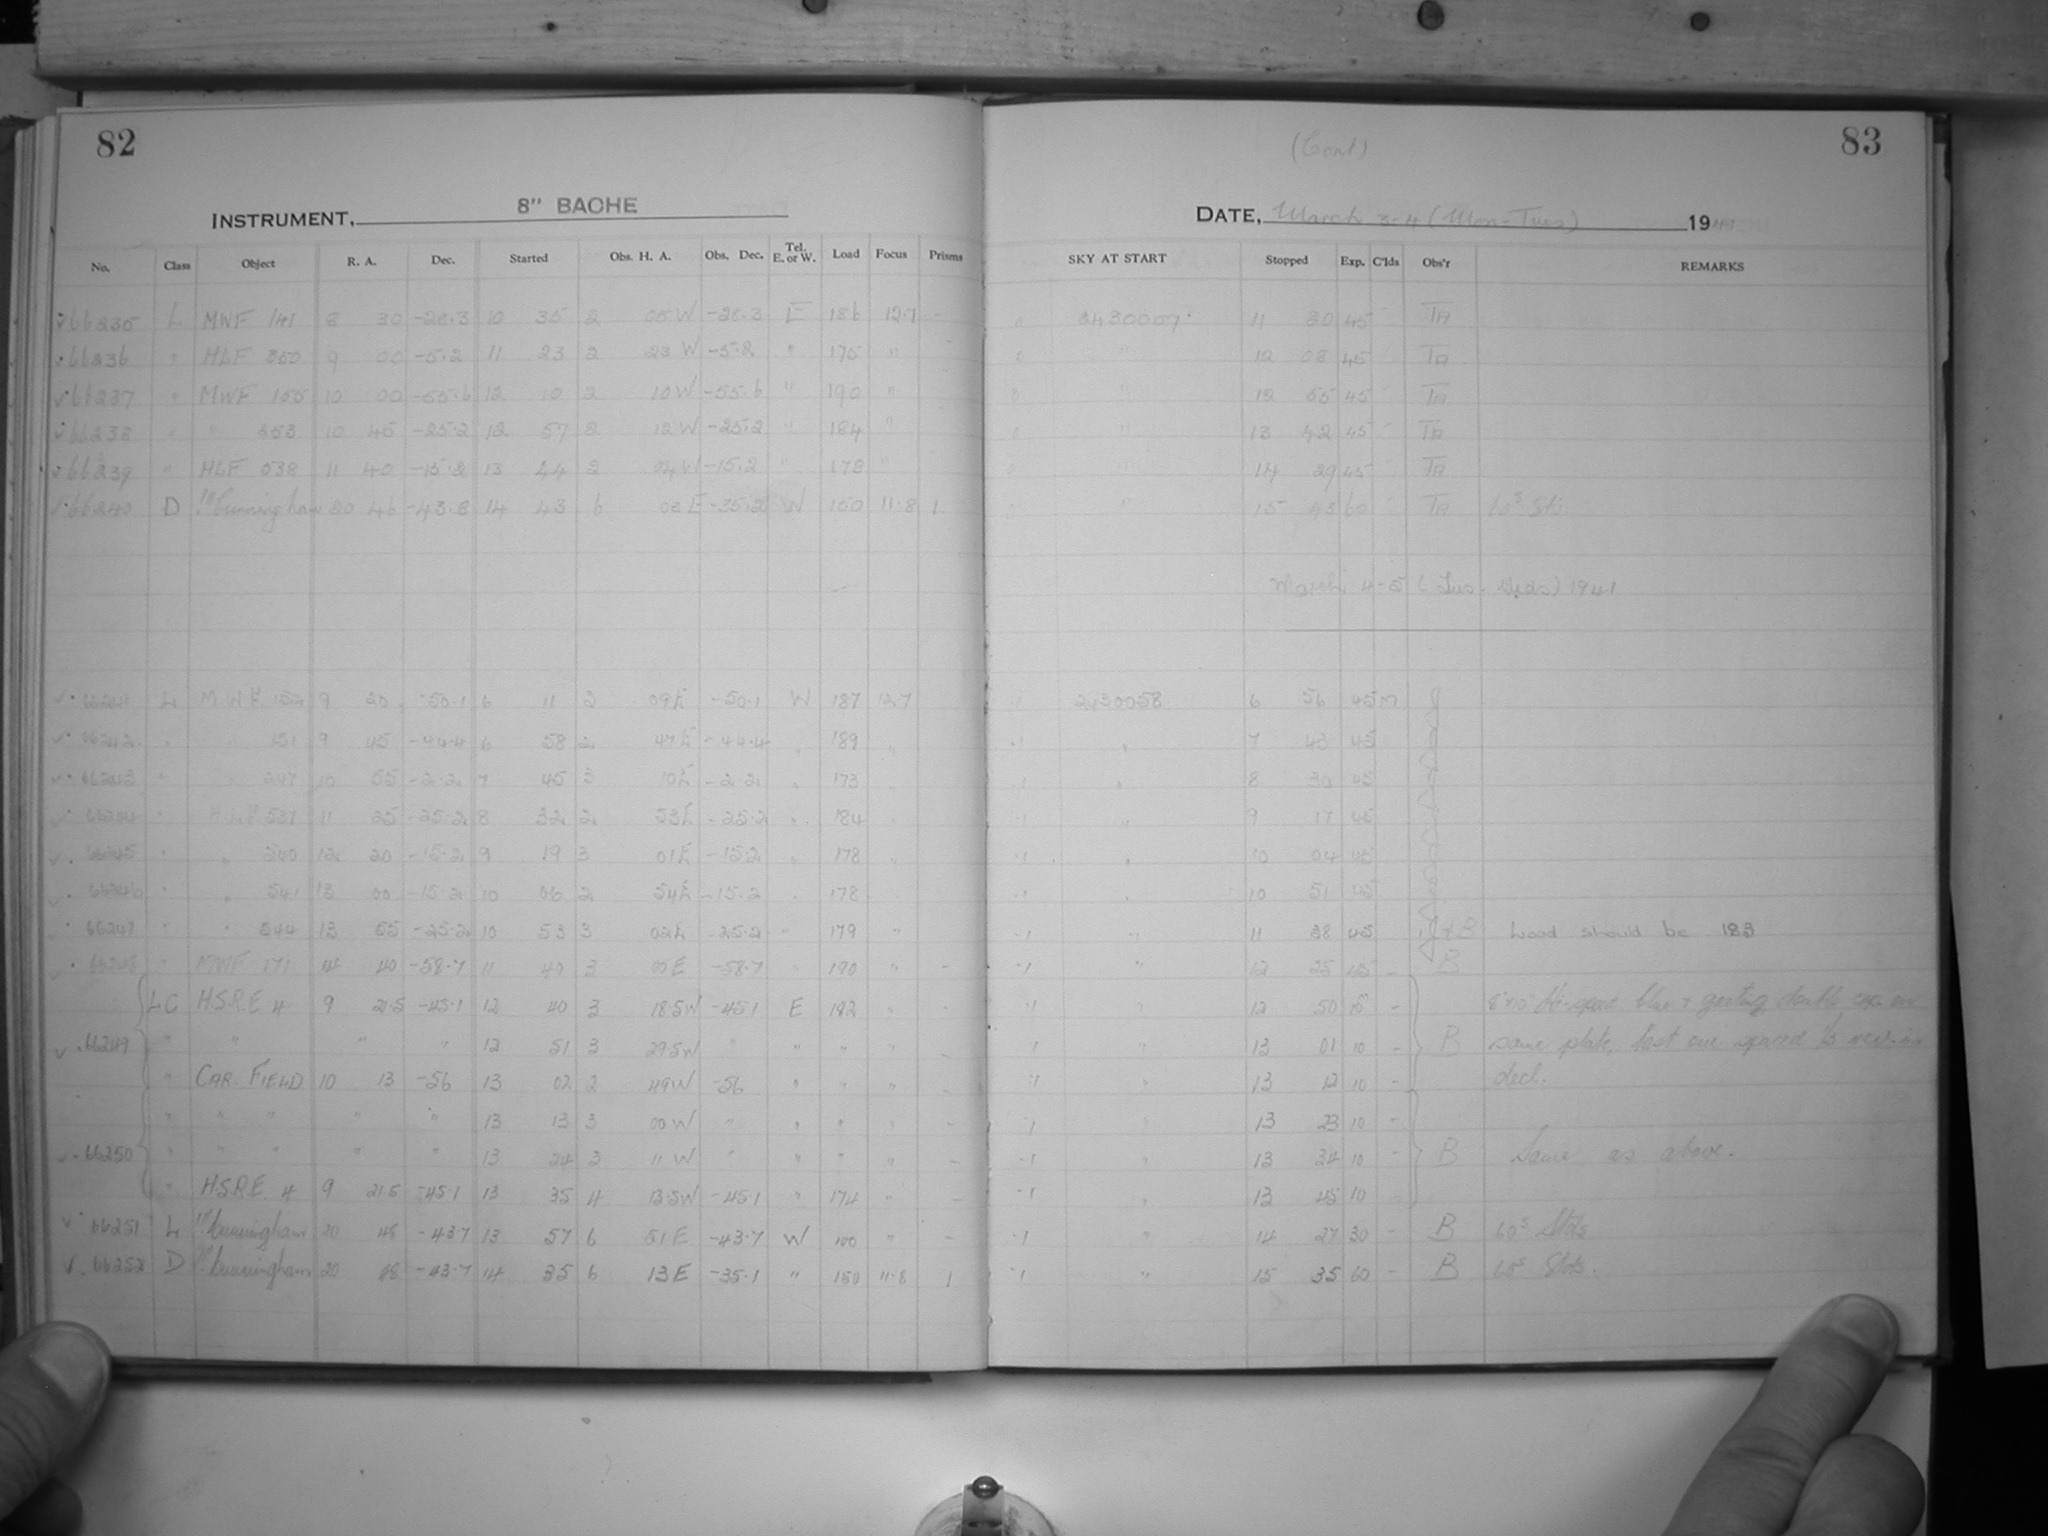 82
INSTRUMENT, 8" BACHE
No. Class Object R. A. Dec. Started Obs. H. A. Obs. Dec. Tel. E. or W. Load Focus Prisms
66235 L MWF 141 8 30 -28.3 10 35 2 05 W -28.3 E 186 12.7 -
66236 " HLF 9 00 -5.2 11 23 2 23 W -5.2 " 175 "
66237 " MWF 155 10 00 -55.6 12 10 2 10 W -55.6 " 190 "
66238 " " 353 10 45 -25.2 12 57 2 12 W -25.2 " 184 "
66239 " HLF 538 11 40 -15.2 13 44 2 04 W -15.2 " 178 "
66240 D Cunningham 20 46 -43.8 14 43 6 03 E -35.2 W 150 11.8 1
66241 L MWF 152 9 20 -50.1 6 11 3 09 E -50.1 W 187 12.7
66242 " " 151 9 45 -44.4 6 58 2 47 E -44.4 " 189 "
66243 " " 247 10 55 -2.2 7 45 3 10 E -2.2 " 173
66244 " HLF 537 11 25 -25.2 8 32 2 53 E -25.2 " 184 "
66245 " " 540 12 20 -15.2 9 19 3 01 E -15.2 " 178 "
66246 " " 541 13 00 -15.2 10 06 2 54 E -15.2 " 178
66247 " " 544 13 55 -25.2 10 53 3 02 E -25.2 " 179 "
66248 " MWF 171 14 40 -58.7 11 40 3 00 E -58.7 " 190 " -
LC H.S.R.E 4 9 21.5 -45.1 12 40 3 18.5 W -45.1 E 192 " -
66249 " " " " 12 51 3 29.5 W " " " " -
" CAR. FIELD 10 13 -56 13 02 2 49 W -56 " " " -
" " " " " 13 13 3 00 W " " " " -
66250 " " " " " 13 24 3 11 W " " " " -
" H.S.R.E 4 9 21.5 -45.1 13 35 4 13.5 W -45.1 " 174 " -
66251 L Cunningham 20 48 -43.7 13 57 6 51 E -43.7 W 100 " -
66252 D Cunningham 20 48 -43.7 14 35 6 13 E -35.1 " 150 11.8 1
(Cont)
83
DATE, March 3-4 (Mon-Tues) 1941
SKY AT START Stopped Exp. C'lds Obs'r REMARKS
2430057 11 20 45 TA
" 12 08 45 TA
" 12 55 45 TA
" 13 42 45 TA
" 14 29 45 TA
" 15 43 60 TA 60s Sts.
March 4-5 (Tus - Weds) 1941
-1 2430058 6 56 45m J
-1 " 7 43 45
-1 " 8 30 45
-1 " 9 17 45
-1 " 10 04 45
-1 " 10 51 45
-1 " 11 38 45 J+B Load should be 183
-1 " 12 25 45 - B
-1 " 12 50 10m - blue + grating double exp. on
-1 " 13 01 10 - B same plate, last one spaced
-1 " 13 12 10 - decl.
-1 " 13 23 10 -
-1 " 13 34 10 - B Same as above.
-1 " 13 45 10 -
-1 " 14 27 30 - B 60s Stots
-1 " 15 35 60 - B 60s Stots.